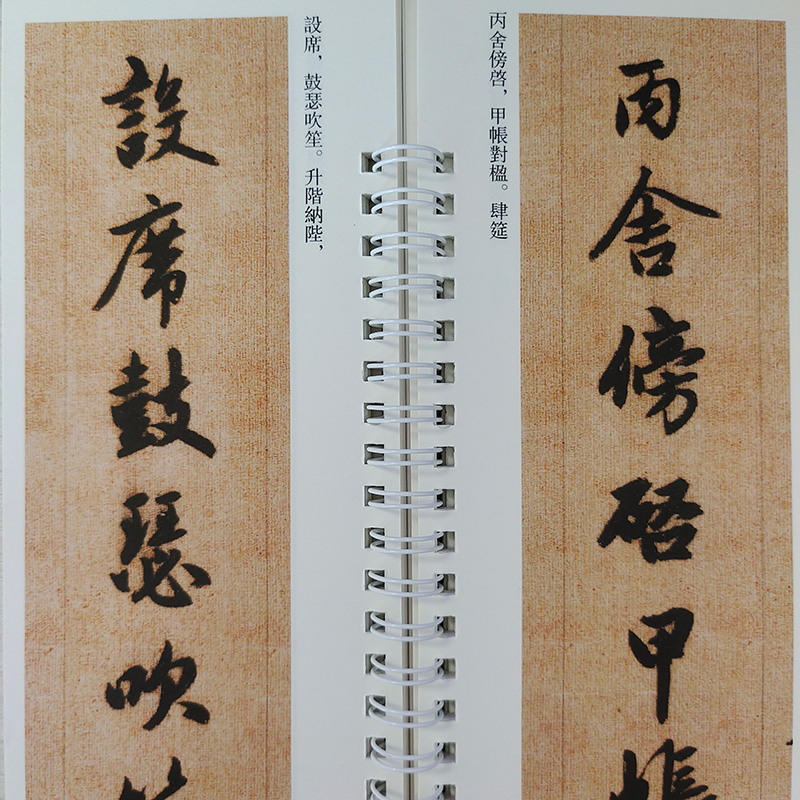 丙舍傍啓甲帳
丙舍傍啓，甲帳對楹。肆筵
設席，鼓瑟吹笙。升階納陛，
設席鼓瑟吹笙